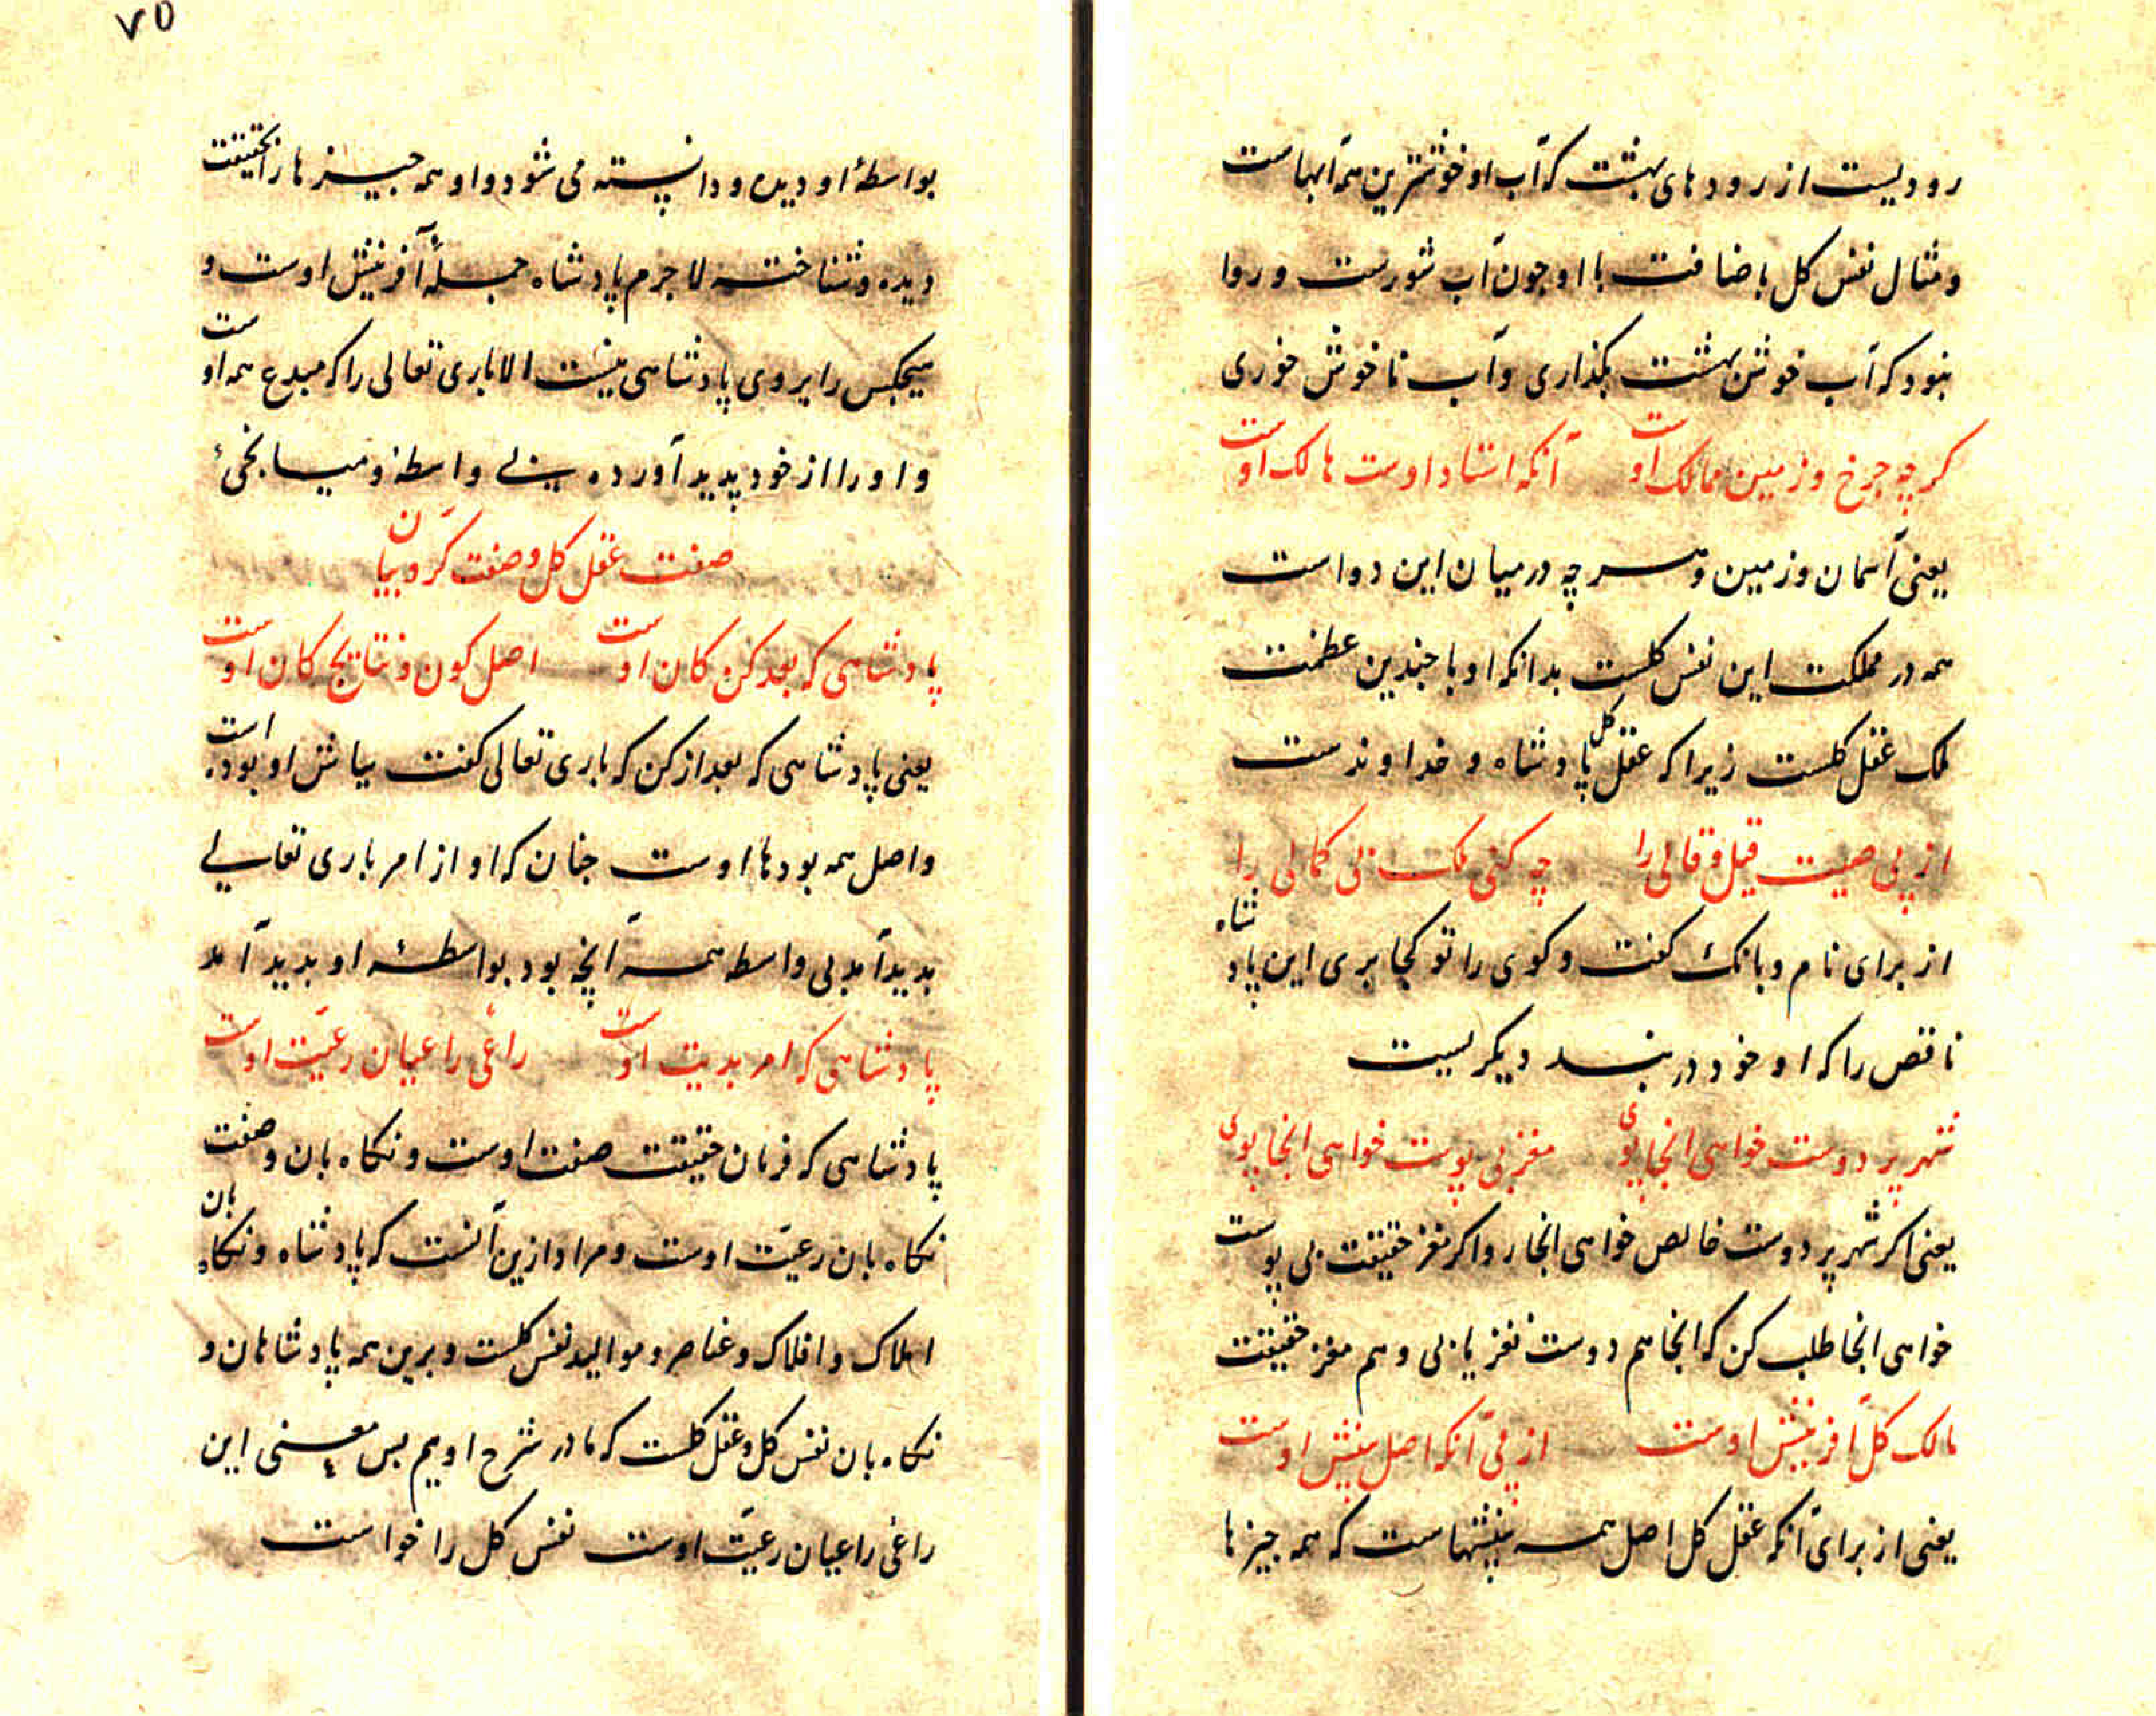 رودیست از رودهای بهشت که آب او خوشترین همه آبهاست
و مثال نفس کل باضافت با او چون آب شورست و روا
نبود که آب خوش بهشت بگذاری و آب ناخوش خوری
کرچه چرخ و زمین ممالک اوست آنکه استاد اوست مالک اوست
یعنی آسمان و زمین و هرچه در میان این دو است
همه در مملکت این نفس کلست بدانکه او با چندین عظمت
ملک عقل کلست زیرا که عقل کل پادشاه و خداوندست
از پی صیت قیل و قالی را چه کنی ملک بی کمالی را
از برای نام و بانک کفت و کوی را تو کجا بری این پادشاه
ناقص را که او خود در بند دیکریست
شهر پر دوست خواهی انجا پوی مغز بی پوست خواهی انجا پوی
یعنی اکر شهر پر دوست خالص خواهی انجا رو اکر مغز حقیقت بی پوست
خواهی انجا طلب کن که انجا هم دوست نغز یابی و هم مغز حقیقت
مالک کل آفرینش اوست از پی آنکه اصل بینش اوست
یعنی از برای آنکه عقل کل اصل همه بینشهاست که همه چیزها
۷۵
بواسطهٔ او دیده و دانسته می شود و او همه چیزها را بحقیقت
دیده و شناخته لاجرم پادشاه جملهٔ آفرینش اوست و
هیچکس را بر وی پادشاهی نیست الا باری تعالی را که مبدع همه اوست
و او را از خود پدید آورده بی واسطهٔ و میانجیٔ
صفت عقل کل و صفت کرّوبیان
پادشاهی که بعد کن کان اوست اصل کون و نتایج کان اوست
یعنی پادشاهی که بعد از کن که باری تعالی کفت بباش او بوده است
و اصل همه بودها اوست چنان که او از امر باری تعالی
پدید آمد بی واسطه همه آنچه بود بواسطهٔ او پدید آمد
پادشاهی که امر بدیت اوست راعی راعیان رعیّت اوست
پادشاهی که فرمان حقیقت صفت اوست و نکاه بان و صفت
نکاه بان رعیّت اوست و مراد ازین آنست که پادشاه و نکاه بان
املاک و افلاک و عناصر و موالید نفس کلست و برین همه پادشاهان و
نکاه بان نفس کل و عقل کلست که ما در شرح اویم پس معنی این
راعی راعیان رعیّت اوست نفس کل را خواست